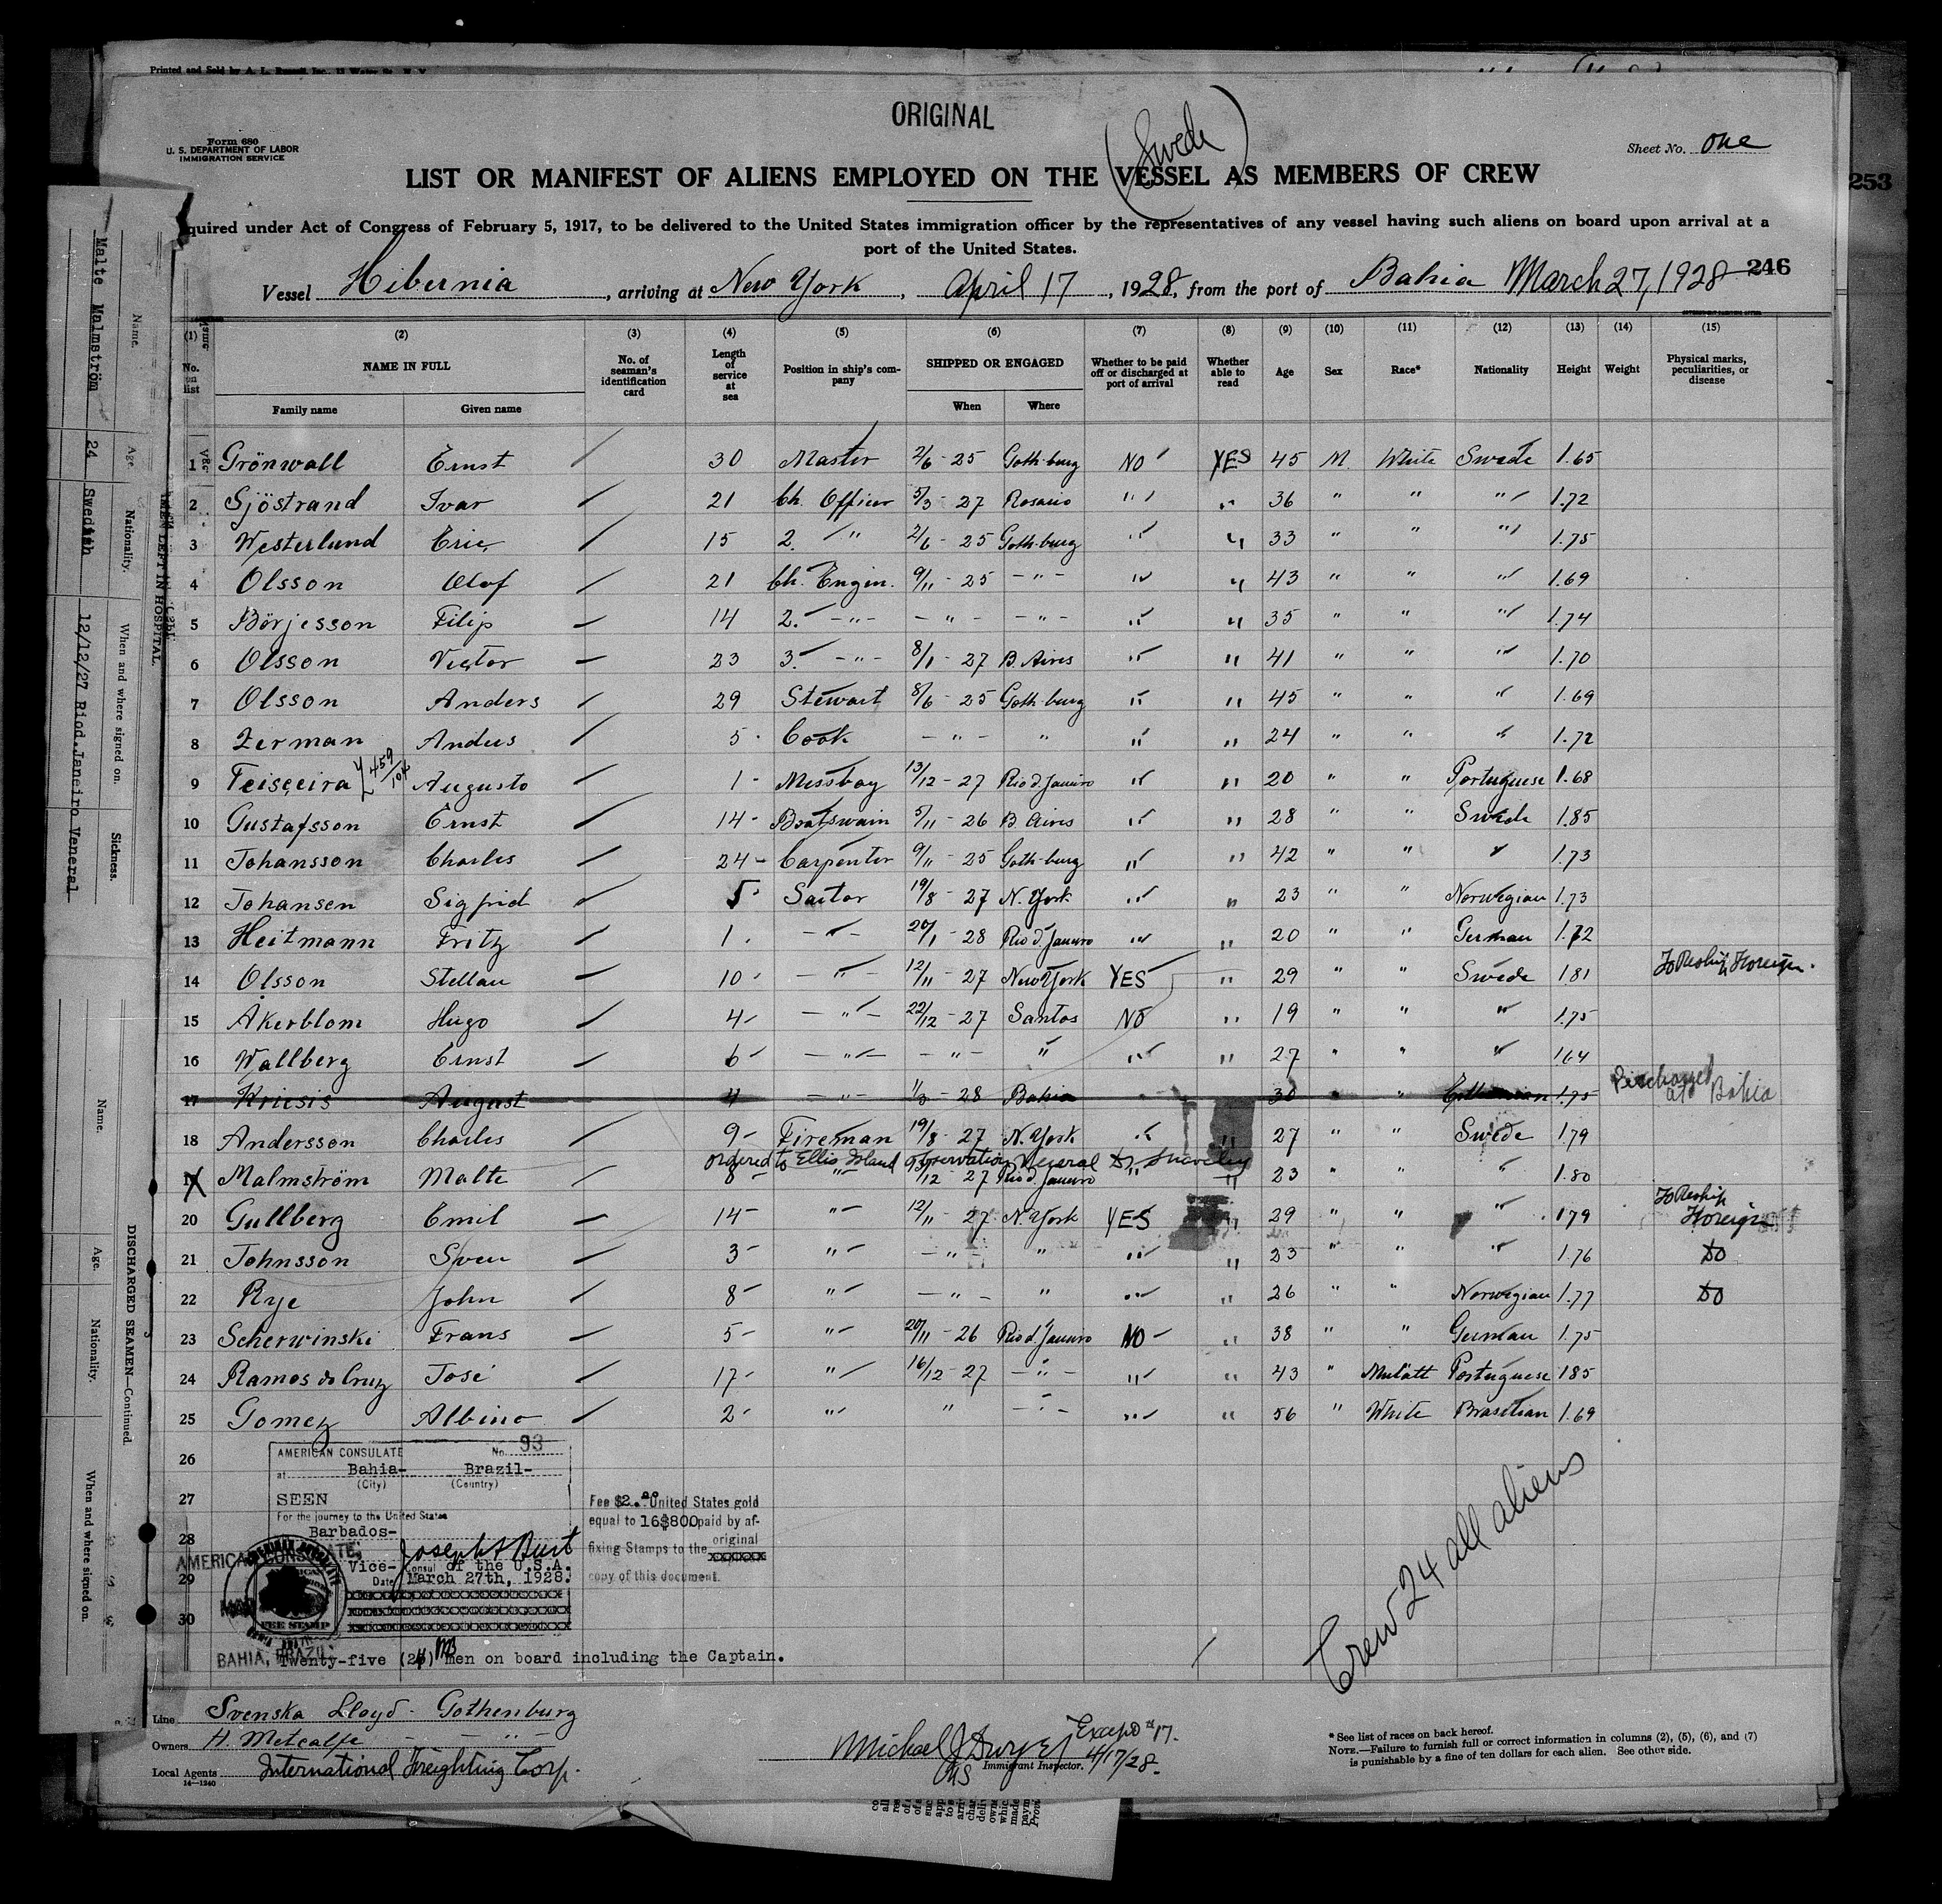 Printed and Sold by A. L. Russell, Inc.
ORIGINAL
(Swede)
Form 680
U. S. DEPARTMENT OF LABOR
IMMIGRATION SERVICE
Sheet No. One
LIST OR MANIFEST OF ALIENS EMPLOYED ON THE VESSEL AS MEMBERS OF CREW
253
quired under Act of Congress of February 5, 1917, to be delivered to the United States immigration officer by the representatives of any vessel having such aliens on board upon arrival at a
port of the United States.
246
Vessel Hibernia, arriving at New York, April 17, 1928, from the port of Bahia March 27, 1928
(1) (2) (3) (4) (5) (6) (7) (8) (9) (10) (11) (12) (13) (14) (15)
No. on list NAME IN FULL No. of seaman's identification card Length of service at sea Position in ship's company SHIPPED OR ENGAGED Whether to be paid off or discharged at port of arrival Whether able to read Age Sex Race* Nationality Height Weight Physical marks, peculiarities, or disease
Family name Given name When Where
1 Grönwall Ernst 30 Master 2/6 - 25 Goth-burg NO YES 45 M. White Swede 1.65
2 Sjöstrand Ivar 21 Ch. Officer 5/3 - 27 Rosario " " 36 " " " 1.72
3 Westerlund Eric 15 2. " 2/6 - 25 Goth-burg " " 33 " " " 1.75
4 Olsson Olof 21 Ch. Engin. 9/11 - 25 - " - " " 43 " " " 1.69
5 Börjesson Filip 14 2. - " - - " - - " - " " 35 " " " 1.74
6 Olsson Victor 23 3. - " - 8/1 - 27 B. Aires " " 41 " " " 1.70
7 Olsson Anders 29 Stewart 8/6 - 25 Goth-burg " " 45 " " " 1.69
8 Zerman Andus 5 Cook - " - " " " 24 " " " 1.72
9 Teisceira 459/104 Augusto 1 - Messboy 13/12 - 27 Rio d. Janeiro " " 20 " " Portuguese 1.68
10 Gustafsson Ernst 14 - Boatswain 5/11 - 26 B. Aires " " 28 " " Swede 1.85
11 Johansson Charles 24 - Carpenter 9/11 - 25 Goth-burg " " 42 " " " 1.73
12 Johansen Sigfrid 5 Sailor 19/8 - 27 N. York " " 23 " " Norwegian 1.73
13 Heitmann Fritz 1. - " - 20/1 - 28 Rio d. Janeiro " " 20 " " German 1.72
14 Olsson Stellan 10 - " - 12/11 - 27 New York YES " 29 " " Swede 1.81 To Reship Foreign.
15 Åkerblom Hugo 4 - " - 22/12 - 27 Santos NO " 19 " " " 1.75
16 Wallberg Ernst 6 - " - - " - " " " 27 " " " 1.64
17 Kriesis August 4 - " - 1/3 - 28 Bahia " 30 " " 1.75 Discharged at Bahia
18 Andersson Charles 9 - Fireman 19/8 - 27 N. York " " 27 " " Swede 1.79
Ordered to Ellis Island observation
19 X Malmström Malte 8 - " 12/12 - 27 Rio d. Janeiro " " 23 " " " 1.80
20 Gullberg Emil 14 - " 12/11 - 27 N. York YES " 29 " " " 1.79 To Reship Foreign
21 Johnsson Sven 3 - " - " - " " " 23 " " " 1.76 DO
22 Rye John 8 - " - " - " " " 26 " " Norwegian 1.77 DO
23 Scherwinski Frans 5 - " 20/11 - 26 Rio d. Janeiro NO " 38 " " German 1.75
24 Ramos da Cruz José 17 - " 16/12 - 27 - " - " " 43 " Mulatt Portuguese 1.85
25 Gomez Albino 2 - " " - " - " " 56 " White Brasilian 1.69
26
27
28
29
30
AMERICAN CONSULATE No. 93
at Bahia- Brazil-
(City) (Country)
SEEN
For the journey to the United States
Barbados-
Joseph A Burt
Vice- Consul of the U.S.A.
Date March 27th, 1928.
AMERICAN CONSULATE
FEE STAMP
BAHIA, BRAZIL
Fee $2.00 United States gold
equal to 16$800 paid by af-
original
fixing Stamps to the xxxxxx
copy of this document.
Twenty-five (24) men on board including the Captain.
Crew 24 all aliens
Line Svenska Lloyd - Gothenburg
Owners H. Metcalfe - " -
Local Agents International Freighting Corp.
14—1240
Michael J Dwyer Except #17.
Immigrant Inspector. 4/17/28.
* See list of races on back hereof.
NOTE.—Failure to furnish full or correct information in columns (2), (5), (6), and (7)
is punishable by a fine of ten dollars for each alien. See other side.
MEN LEFT IN HOSPITAL.
Name. Age. Nationality. When and where signed on. Sickness.
Malte Malmström 24 Swedish 12/12/27 Riod.Janeiro Veneral
DISCHARGED SEAMEN—Continued.
Name. Age. Nationality. When and where signed on.